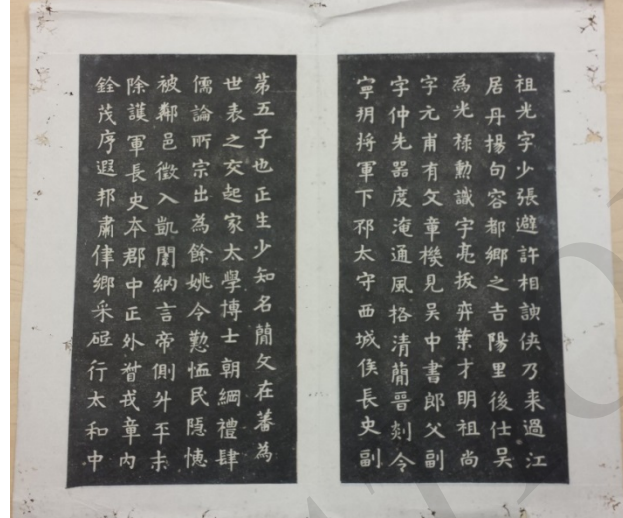 祖光字少張避許相諛俠乃来過江
居丹揚句容都鄉之吉陽里後仕吴
為光禄勲識宇亮拔弈葉才明祖尚
字元甫有文章機見吴中書郎父副
字仲先器度淹通風格清蕳晉剡令
寧朔将軍下邳太守西城侯長史副
第五子也正生少知名蕳文在蕃為
世表之交起家太學博士朝綱禮肆
儒論所宗出為餘姚令懃恤民隠惪
被鄰邑徵入凱闥納言帝側升平末
除護軍長史本郡中正外督戎章内
銓茂序遐邦肅律鄉采砥行太和中